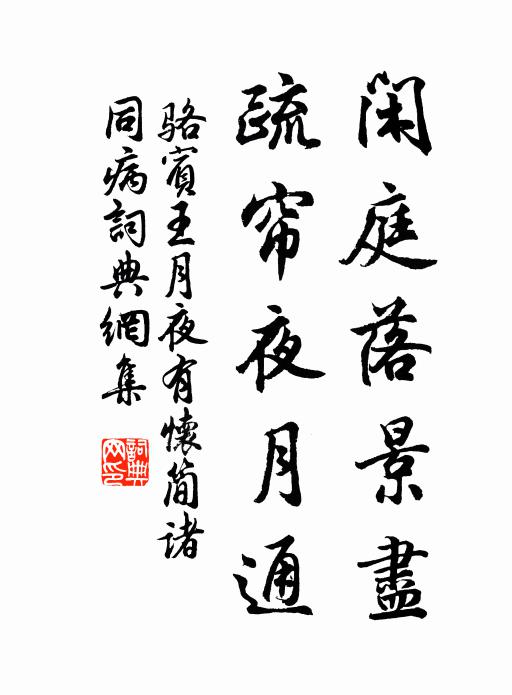 閑庭落景盡
疏帘夜月通
骆賓王月夜有懷简諸
同病詞典網集
詞典
网印